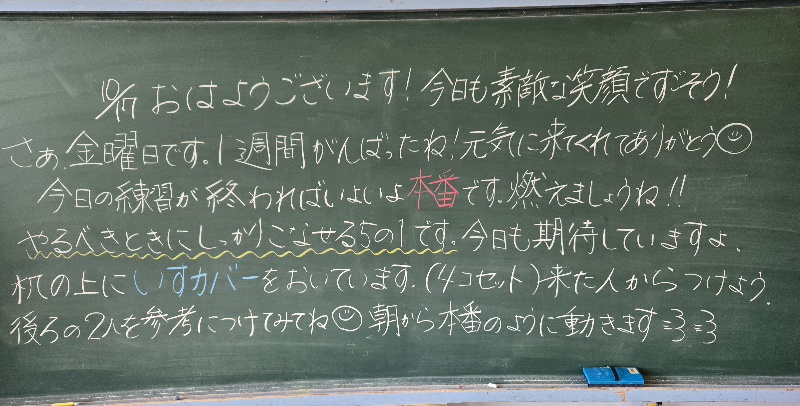 10/17 おはようございます！今日も素敵な笑顔ですごそう！
さぁ、金曜日です。1週間がんばったね！元気に来てくれてありがとう☺
今日の練習が終わればいよいよ本番です。燃えましょうね！！
やるべきときにしっかりこなせる5の1です。今日も期待していますよ、
机の上にいすカバーをおいています。(4コセット)来た人からつけよう。
後ろの2人を参考につけてみてね☺朝から本番のように動きます